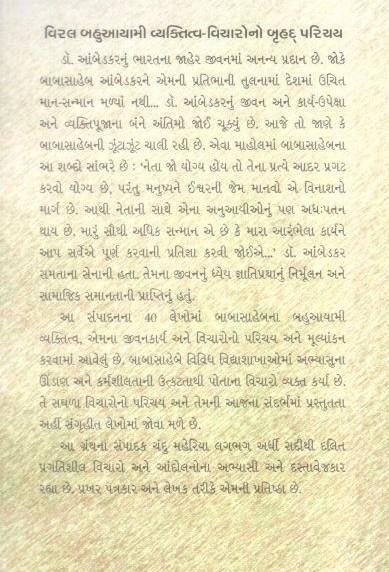 વિરલ બહુઆયામી વ્યક્તિત્વ-વિચારોનો બૃહદ્ પરિચય
ડૉ. આંબેડકરનું ભારતના જાહેર જીવનમાં અનન્ય પ્રદાન છે. જોકે
બાબાસાહેબ આંબેડકરને એમની પ્રતિભાની તુલનામાં દેશમાં ઉચિત
માન-સન્માન મળ્યાં નથી... ડૉ. આંબેડકરનું જીવન અને કાર્ય-ઉપેક્ષા
અને વ્યક્તિપૂજાના બંને અંતિમો જોઈ ચૂક્યું છે. આજે તો જાણે કે
બાબાસાહેબની ઝૂંટાઝૂંટ ચાલી રહી છે. એવા માહોલમાં બાબાસાહેબના
આ શબ્દો સાંભરે છે : ‘નેતા જો યોગ્ય હોય તો તેના પ્રત્યે આદર પ્રગટ
કરવો યોગ્ય છે, પરંતુ મનુષ્યને ઈશ્વરની જેમ માનવો એ વિનાશનો
માર્ગ છે. આથી નેતાની સાથે એના અનુઆયીઓનું પણ અધઃપતન
થાય છે. મારું સૌથી અધિક સન્માન એ છે કે મારા આરંભેલા કાર્યને
આપ સર્વેએ પૂર્ણ કરવાની પ્રતિજ્ઞા કરવી જોઈએ...’ ડૉ. આંબેડકર
સમતાના સેનાની હતા. તેમના જીવનનું ધ્યેય જ્ઞાતિપ્રથાનું નિર્મૂલન અને
સામાજિક સમાનતાની પ્રાપ્તિનું હતું.
આ સંપાદનના 40 લેખોમાં બાબાસાહેબના બહુઆયામી
વ્યક્તિત્વ, એમના જીવનકાર્ય અને વિચારોનો પરિચય અને મૂલ્યાંકન
કરવામાં આવેલું છે. બાબાસાહેબે વિવિધ વિદ્યાશાખાઓમાં અભ્યાસુના
ઊંડાણ અને કર્મશીલતાની ઉત્કટતાથી પોતાના વિચારો વ્યક્ત કર્યા છે.
તે સઘળા વિચારોનો પરિચય અને તેમની આજના સંદર્ભમાં પ્રસ્તુતતા
અહીં સંગૃહીત લેખોમાં જોવા મળે છે.
આ ગ્રંથના સંપાદક ચંદુ મહેરિયા લગભગ અર્ધી સદીથી દલિત
પ્રગતિશીલ વિચારો અને આંદોલનોના અભ્યાસી અને દસ્તાવેજકાર
રહ્યા છે. પ્રખર પત્રકાર અને લેખક તરીકે એમની પ્રતિષ્ઠા છે.